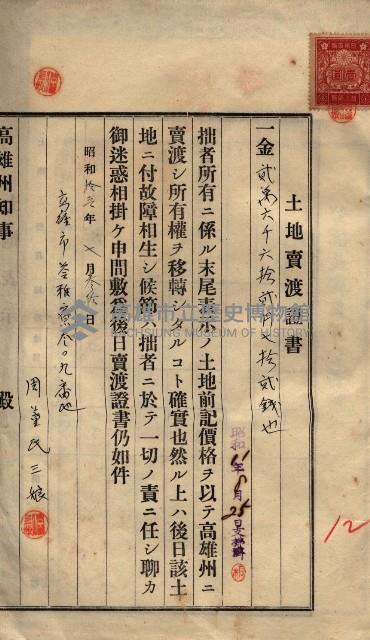 土地賣渡證書
一金貳萬六千六拾貳圓七拾貳錢也
昭和11年8月25日受執濟
拙者所有ニ係ル末尾表示ノ土地前記價格ヲ以テ高雄州ニ
賣渡シ所有權ヲ移轉シタルコト確實也然ル上ハ後日該土
地ニ付故障相生シ候節ハ拙者ニ於テ一切ノ責ニ任シ聊カ
御迷惑相掛ケ申間敷爲後日賣渡證書仍如件
昭和拾 年七月參拾日
高雄市苓雅寮 九番地
周董氏三娘
高雄州知事 殿
高雄市立歷史博物館
KAOHSIUNG MUSEUM OF HISTORY
12